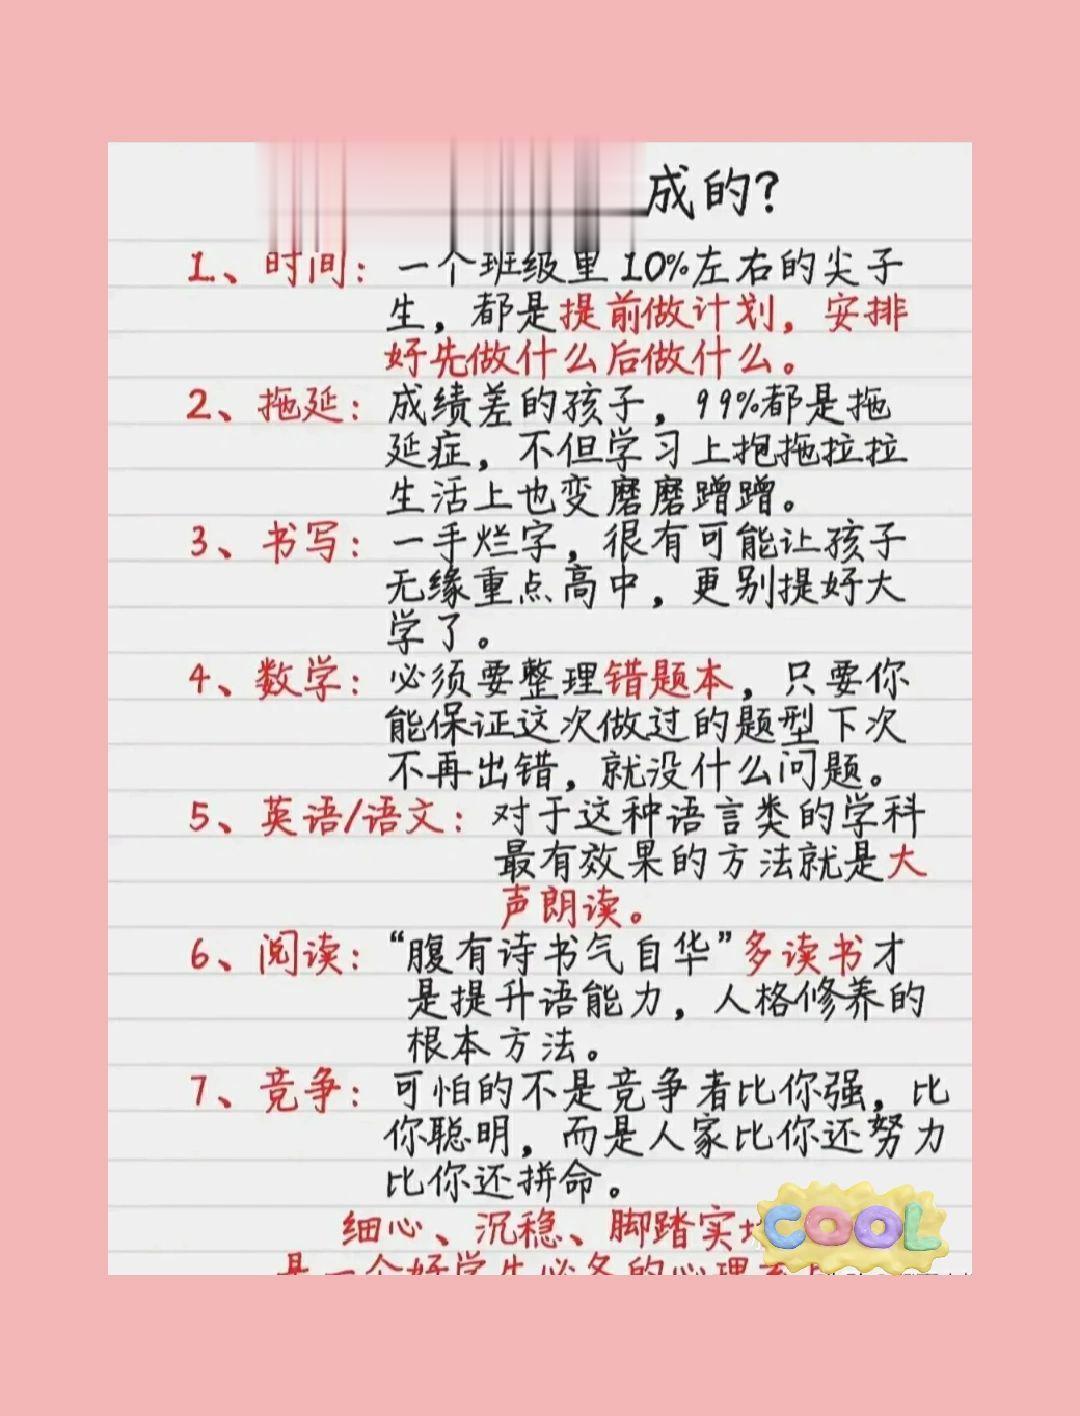 成的？
1、时间：一个班级里10%左右的尖子
生，都是提前做计划，安排
好先做什么后做什么。
2、拖延：成绩差的孩子，99%都是拖
延症，不但学习上拖拖拉拉
生活上也变磨磨蹭蹭。
3、书写：一手烂字，很有可能让孩子
无缘重点高中，更别提好大
学了。
4、数学：必须要整理错题本，只要你
能保证这次做过的题型下次
不再出错，就没什么问题。
5、英语/语文：对于这种语言类的学科
最有效果的方法就是大
声朗读。
6、阅读：“腹有诗书气自华”多读书才
是提升语能力，人格修养的
根本方法。
7、竞争：可怕的不是竞争者比你强，比
你聪明，而是人家比你还努力
比你还拼命。
细心、沉稳、脚踏实
COOL
是一个好学生必备的心理素